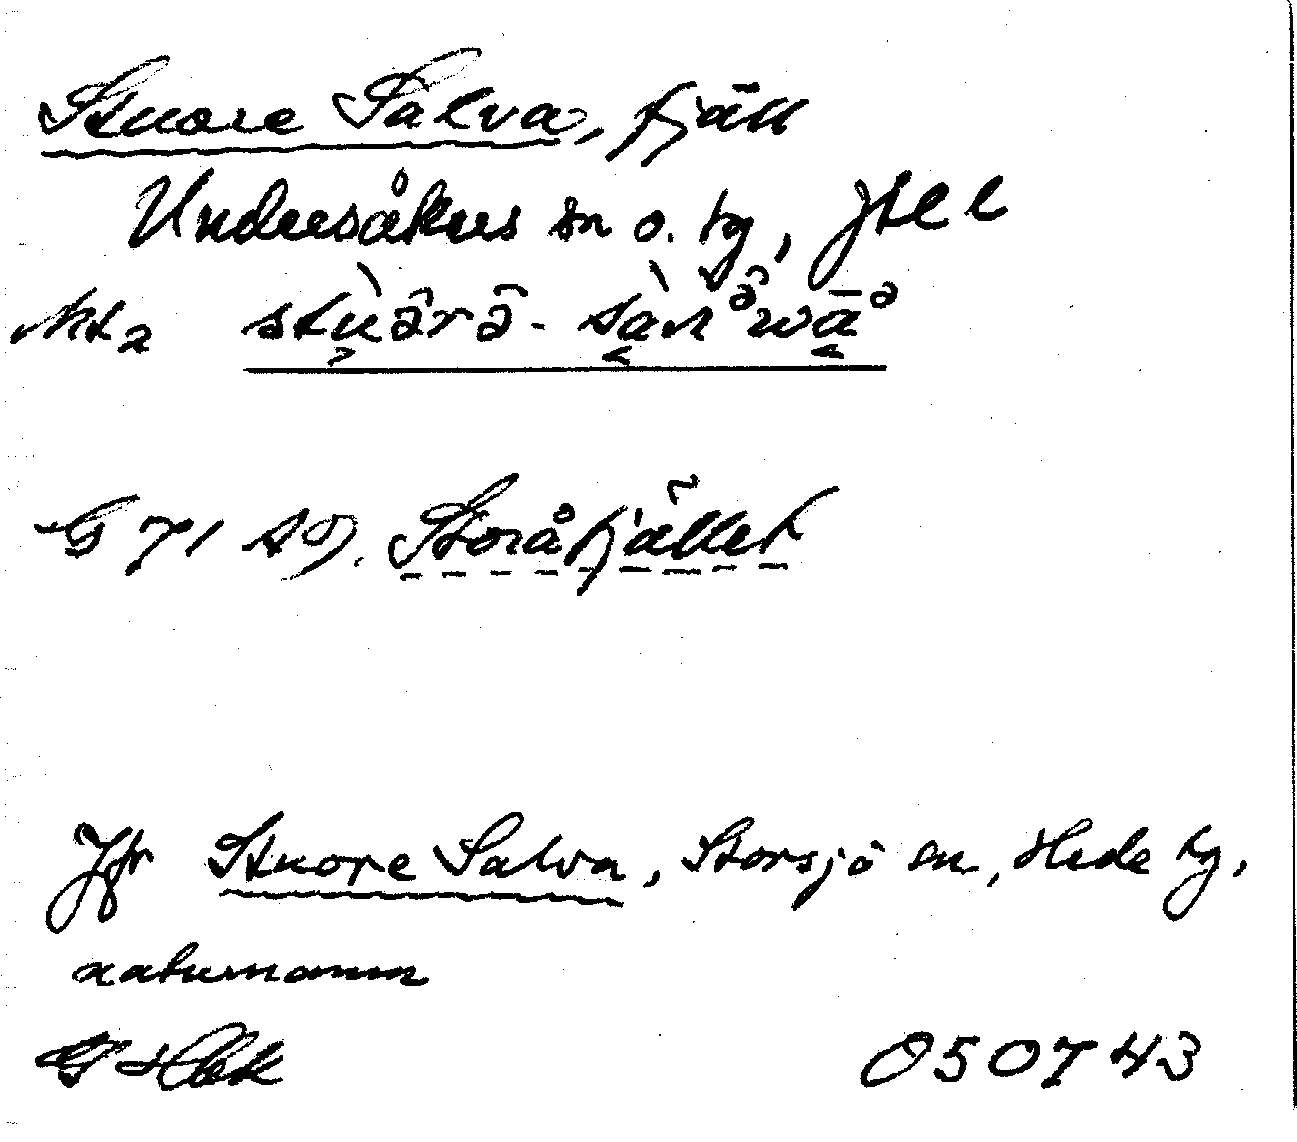 Stuore Salva, fjäll
Undersåkers sn o. tg, Jtl
stù̧ərə̂ - sàlᵊwāᵊ
G 71 SO. Storåfjället
Jfr Stuore Salva, Storsjö sn, Hede tg,
naturnamn
050743